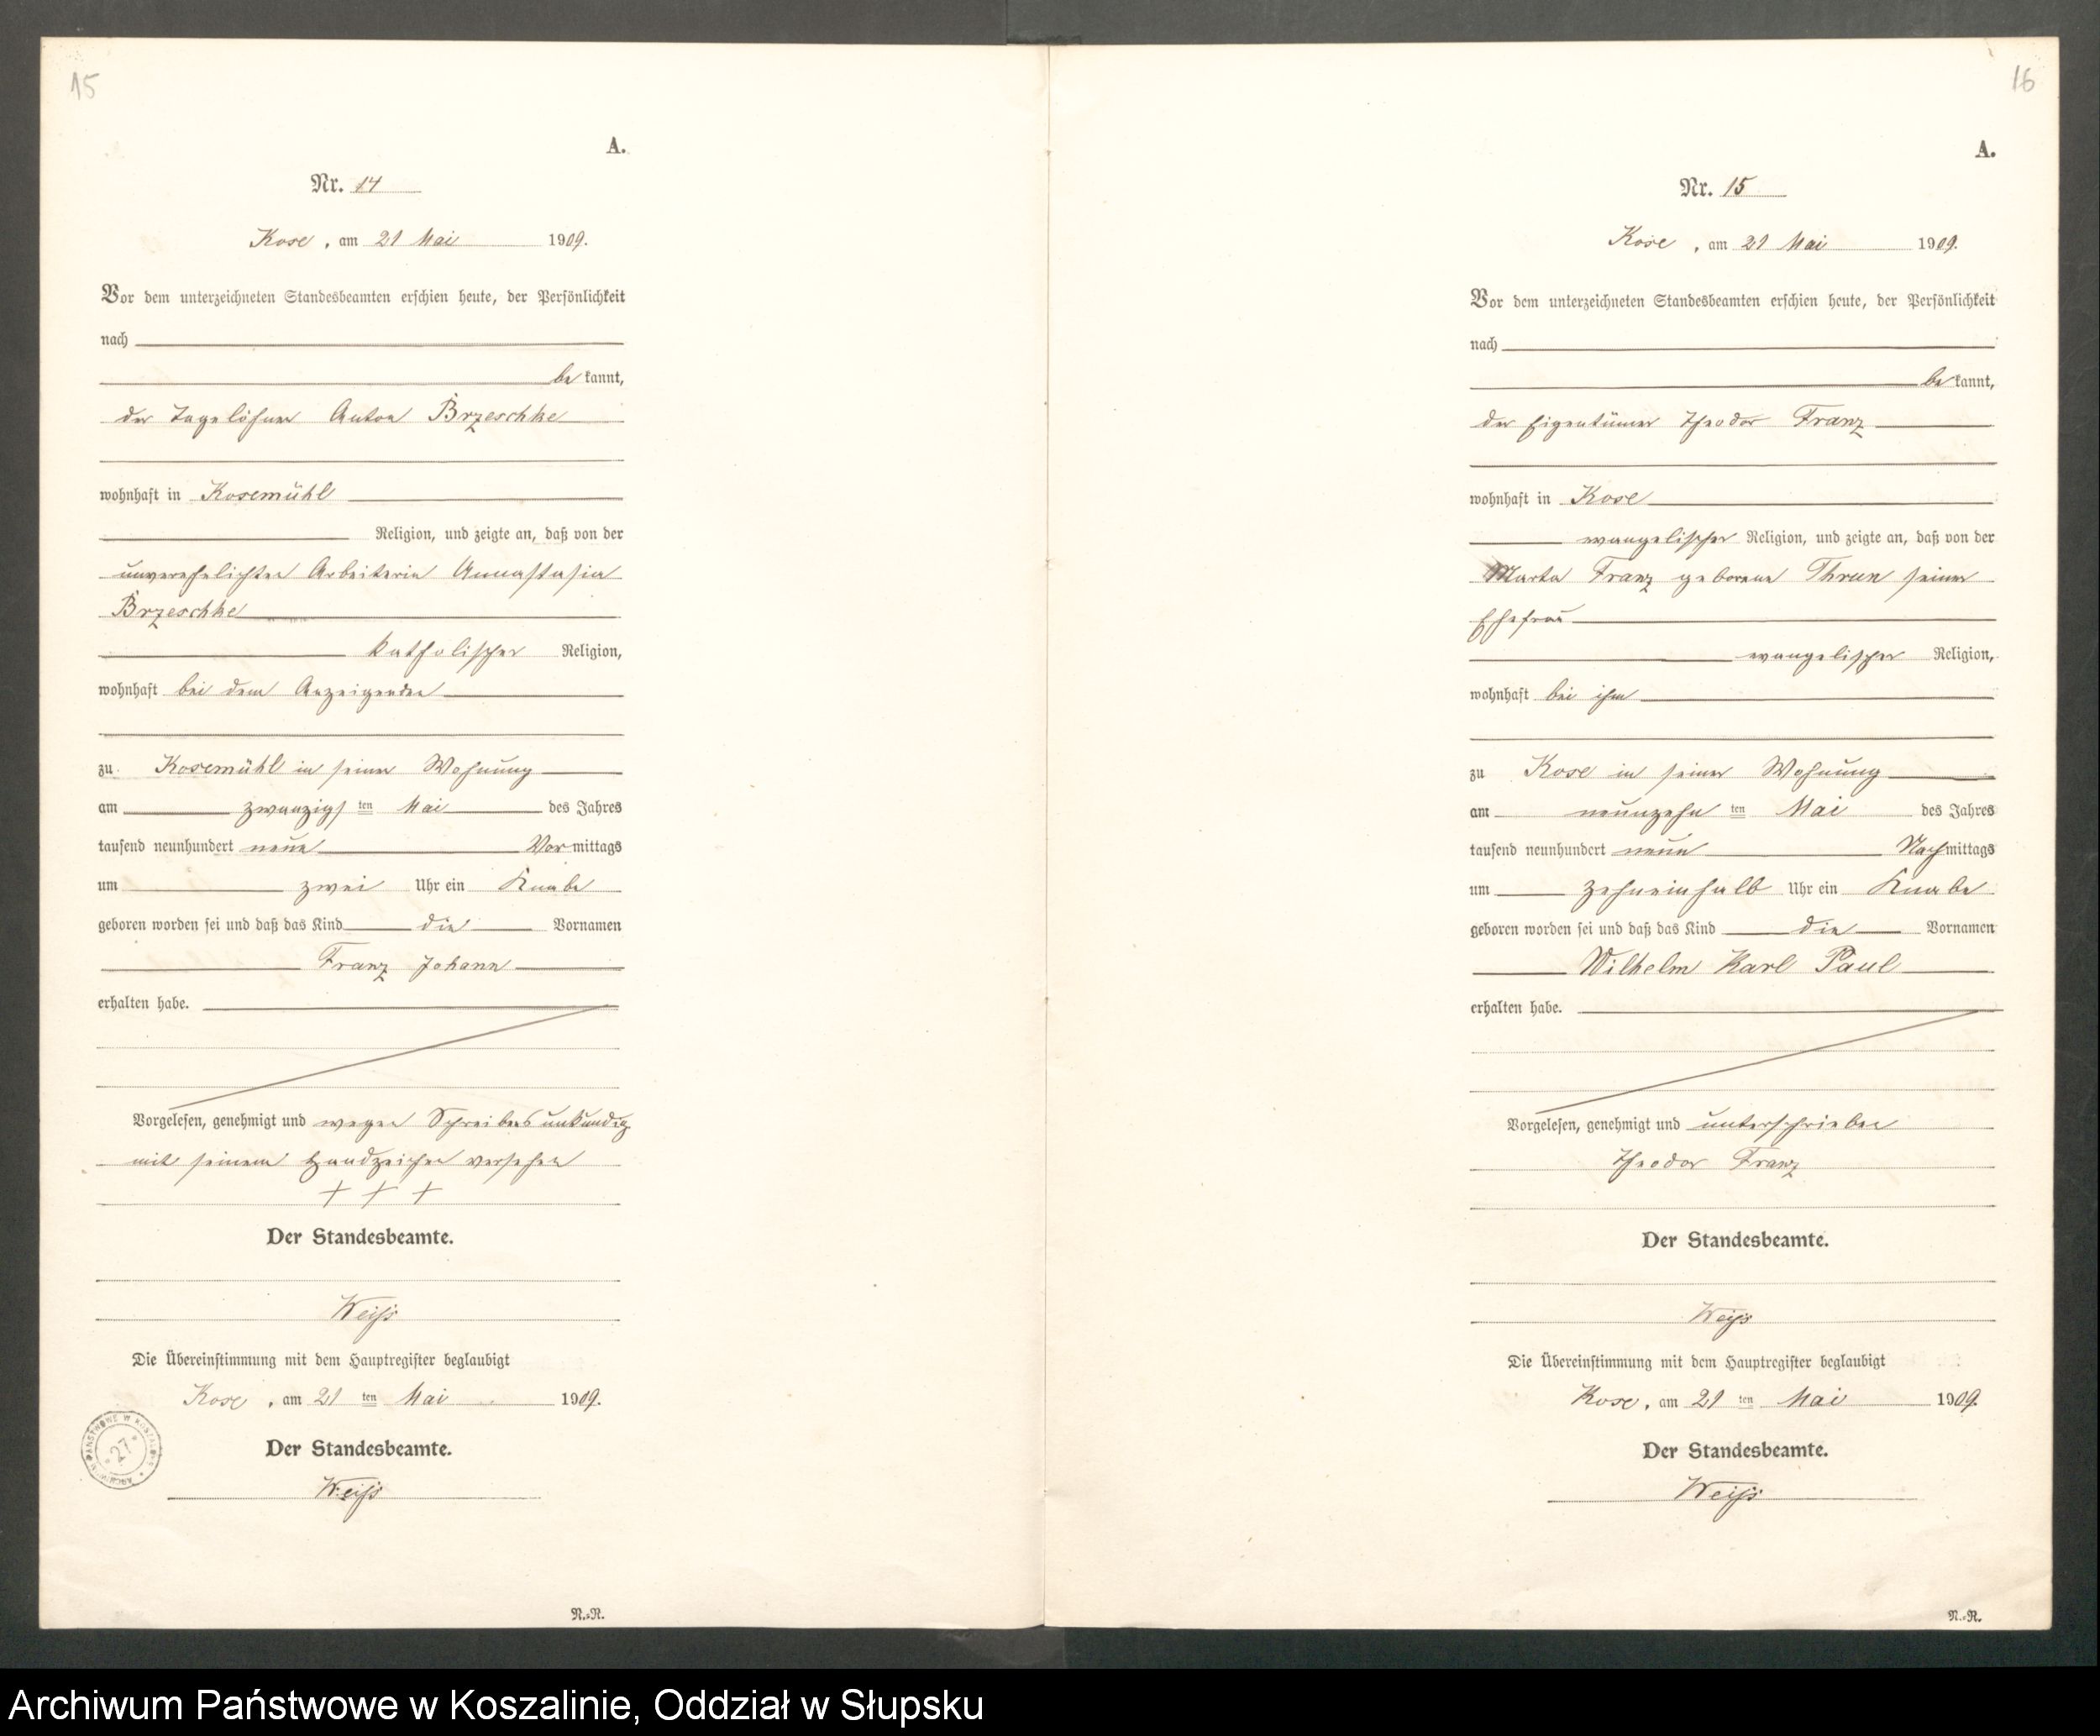 15
A.
Nr. 14
Kose, am 21 Mai 1909.
Vor dem unterzeichneten Standesbeamten erschien heute, der Persönlichkeit
nach
be kannt,
der Tagelöhner Anton Brzeschke
wohnhaft in Kosemühl
Religion, und zeigte an, daß von der
unverehelichten Arbeiterin Annastasia
Brzeschke
katholischer Religion,
wohnhaft bei dem Anzeigenden
zu Kosemühl in seiner Wohnung
am zwanzigsten Mai des Jahres
tausend neunhundert neun Vormittags
um zwei Uhr ein Knabe
geboren worden sei und daß das Kind die Vornamen
Franz Johann
erhalten habe.
Vorgelesen, genehmigt und wegen Schreibensunkundig
mit seinem Handzeichen versehen
+ + +
Der Standesbeamte.
Weiß
Die Übereinstimmung mit dem Hauptregister beglaubigt
Kose, am 21 ten Mai 1909.
Der Standesbeamte.
Weiß
27
N.=R.
16
A.
Nr. 15
Kose, am 21 Mai 1909.
Vor dem unterzeichneten Standesbeamten erschien heute, der Persönlichkeit
nach
be kannt,
der Eigentümer Theodor Franz
wohnhaft in Kose
evangelischer Religion, und zeigte an, daß von der
Marta Franz geborene Thrun seiner
Ehefrau
evangelischer Religion,
wohnhaft bei ihm
zu Kose in seiner Wohnung
am neunzehn ten Mai des Jahres
tausend neunhundert neun Nachmittags
um zehneinhalb Uhr ein Knabe
geboren worden sei und daß das Kind die Vornamen
Wilhelm Karl Paul
erhalten habe.
Vorgelesen, genehmigt und unterschrieben
Theodor Franz
Der Standesbeamte.
Weiß
Die Übereinstimmung mit dem Hauptregister beglaubigt
Kose, am 21 ten Mai 1909.
Der Standesbeamte.
Weiß
N.=R.
Archiwum Państwowe w Koszalinie, Oddział w Słupsku